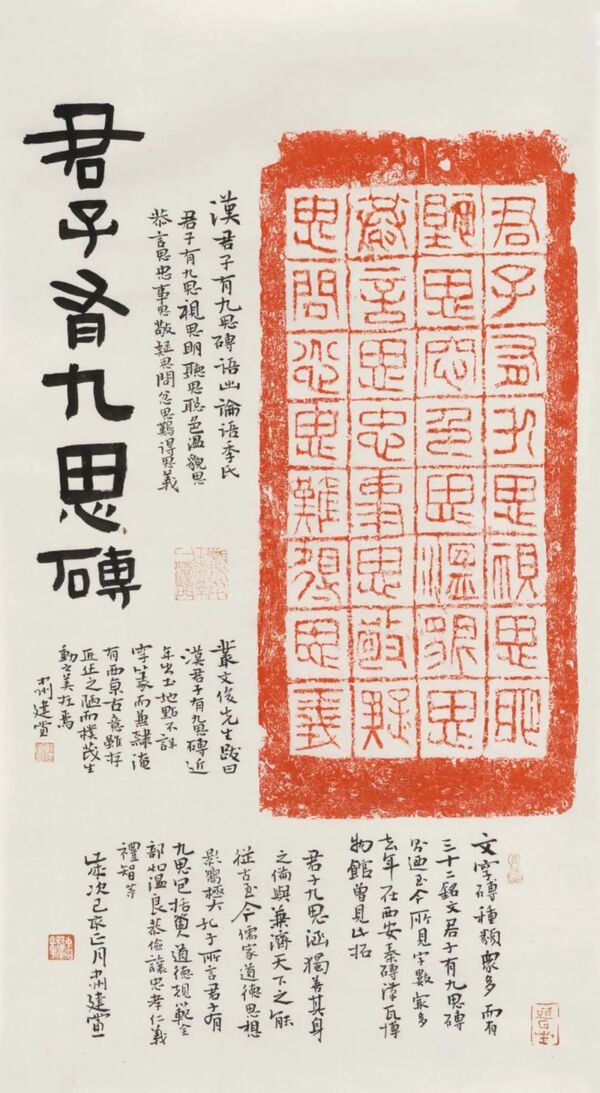 君子有九思磚
君子有九思視思明
聽思聰色思溫貌思
恭言思忠事思敬疑
思問忿思難得思義
漢君子有九思磚語出論語季氏
君子有九思視思明聽思聰色溫貌思
恭言思忠事思敬疑思問忿思難得思義
叢文俊先生跋曰
漢君子有九思磚近
年出土地點不詳
字以篆而兼隸淹
有西京古意雖存
匠止之陋而樸茂生
動之美在焉
文字磚種類衆多而有
三十二銘文君子有九思磚
為迄至今所見字數最多
去年在西安秦磚漢瓦博
物館曾見此拓
君子九思涵獨善其身
之倫與兼濟天下之能
從古至今儒家道德思想
影響極大孔子所言君子有
九思包括道德規範全
部如溫良恭儉讓忠孝仁義
禮智等
歲次己亥正月